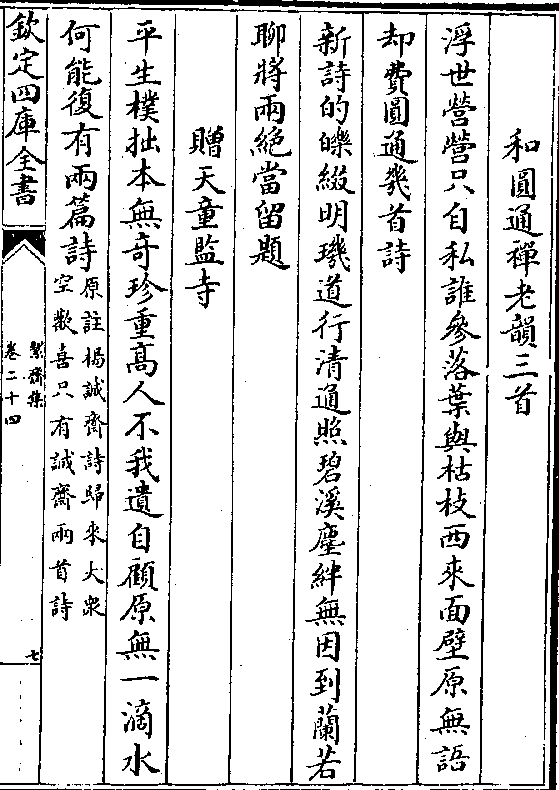 和圓通禪老韻三首
浮世營營只自私誰參落葉與枯枝西來面壁原無語
却費圓通幾首詩
新詩的皪綴明璣道行清通照碧溪塵絆無因到蘭若
聊將兩絶當留題
贈天童監寺
平生樸拙本無奇珍重高人不我遺自顧原無一滴水
何能復有兩篇詩原註楊誠齋詩歸來大衆
空歡喜只有誠齋兩首詩
欽定四庫全書
絜齋集
卷二十四
七